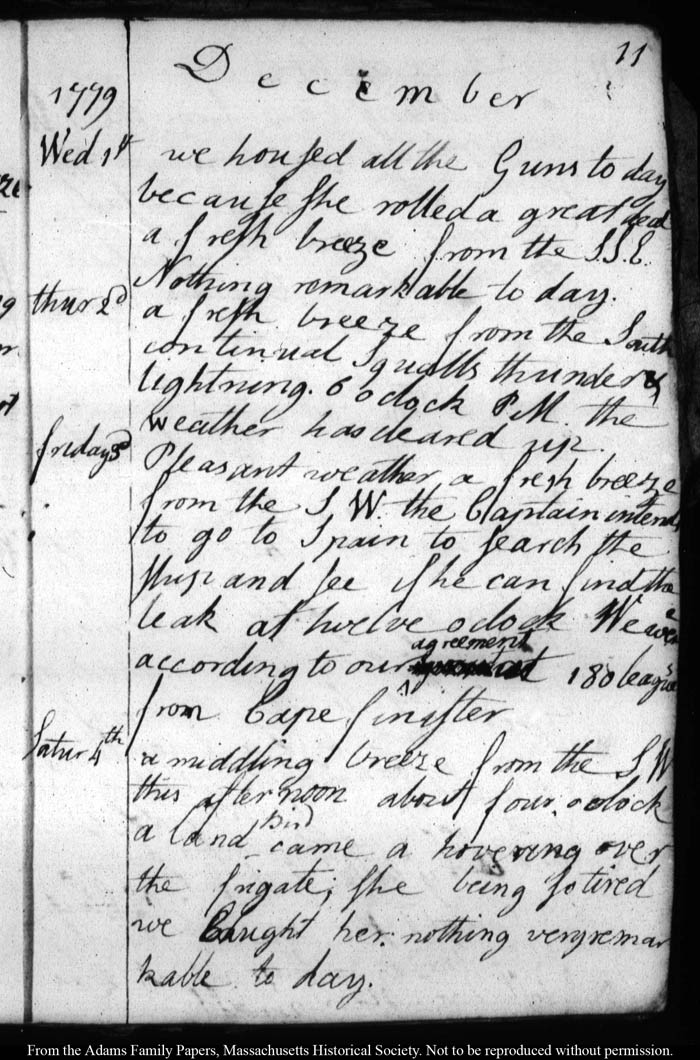 11
December
1779
Wed 1st we housed all the Guns to day
because she rolled a great deal
a fresh breeze from the S.S.E.
thur 2d Nothing remarkable to day.
a fresh breeze from the South
continual Squalls thunder &
lightning. 6 oclock P.M. the
weather has cleared up.
friday 3d Pleasant weather a fresh breeze
from the S W. the Captain intends
to go to Spain to search the
ship and see if he can find the
leak at twelve oclock We were
according to our agreement 180 leagues
from Cape finister
Satur 4th a middling breeze from the S W
this afternoon about four oclock
a land Bird came a hovering over
the frigate; she being so tired
we Caught her. nothing very remar
kable to day.
From the Adams Family Papers, Massachusetts Historical Society. Not to be reproduced without permission.